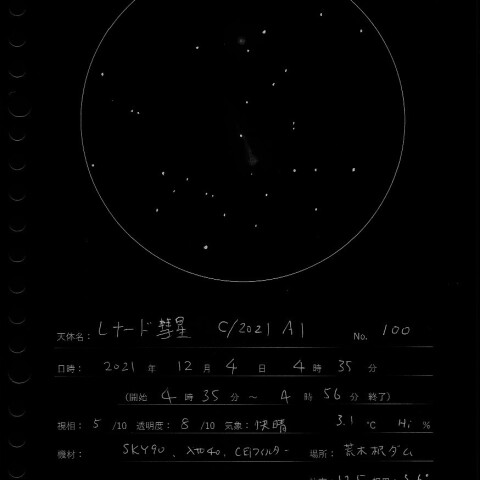 天体名: レナード彗星 C/2021 A1 No. 100
日時: 2021 年 12 月 4 日 4 時 35 分
(開始 4 時 35 分 ～ 4 時 56 分 終了)
視相: 5 /10 透明度: 8 /10 気象: 快晴 3.1 °C Hi %
機材: SKY90、 、CE1フィルター 場所: 荒木根ダム